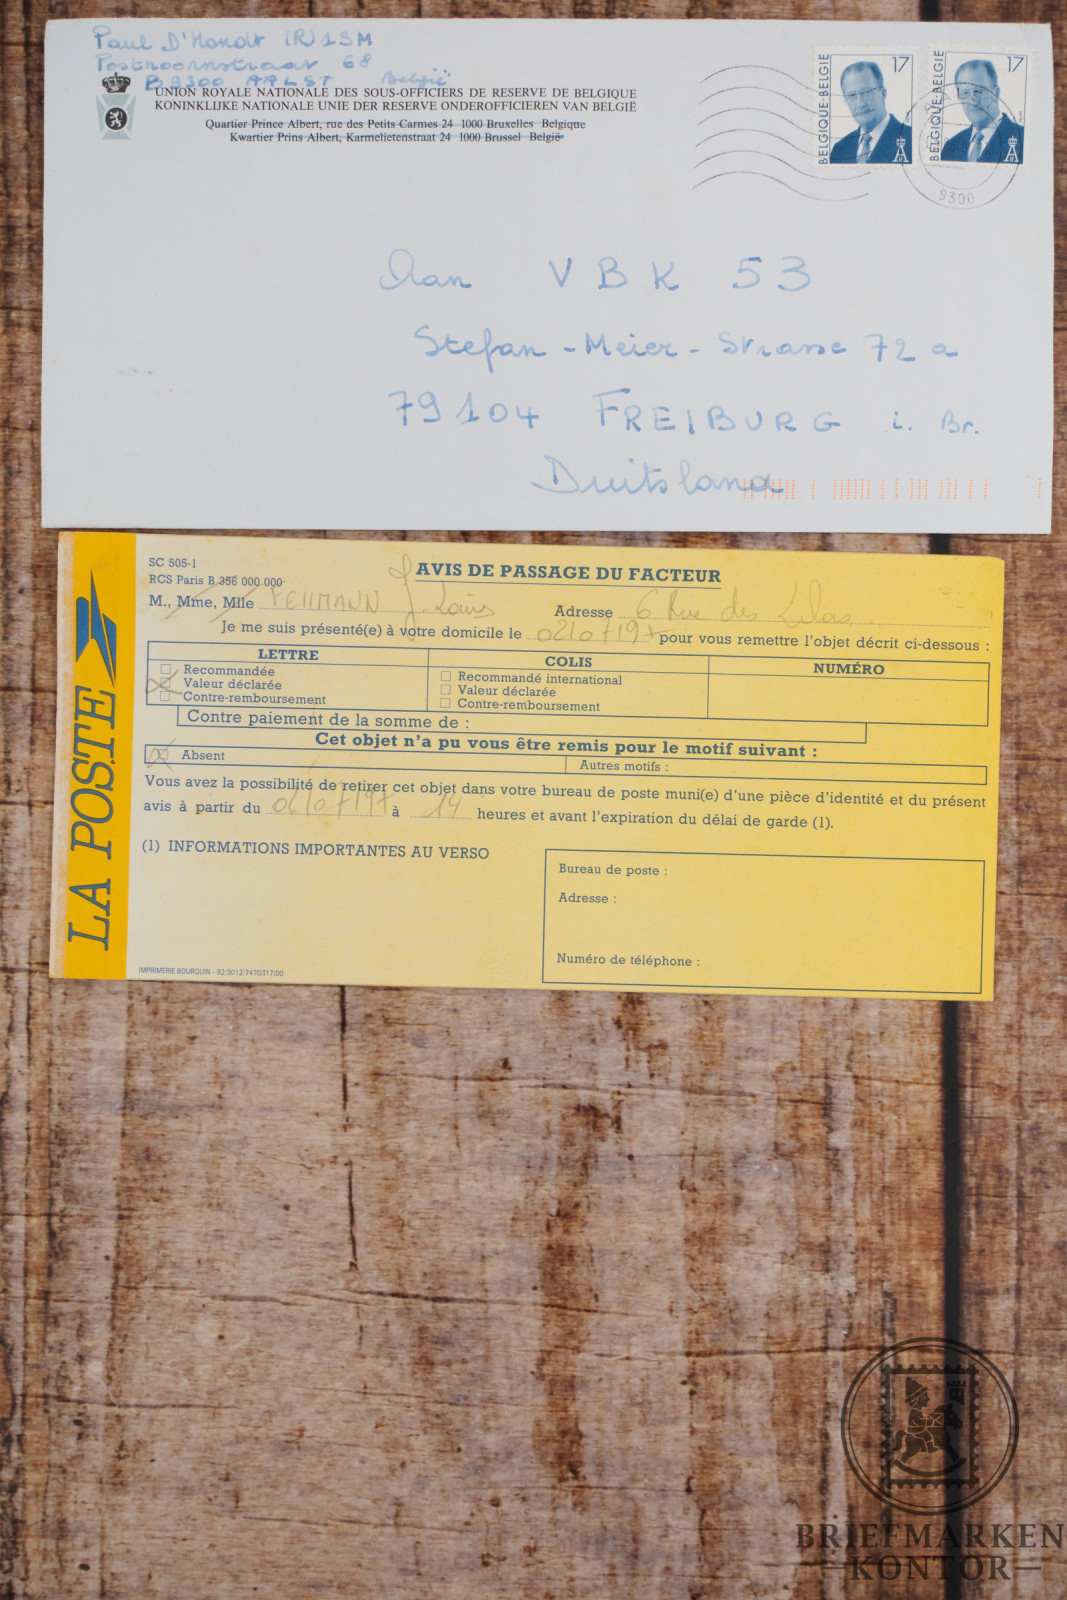 Paul D'Hondt (R) 1SM
Posthoornstraat 68
B 9300 AALST België
UNION ROYALE NATIONALE DES SOUS-OFFICIERS DE RESERVE DE BELGIQUE
KONINKLIJKE NATIONALE UNIE DER RESERVE ONDEROFFICIEREN VAN BELGIË
Quartier Prince Albert, rue des Petits Carmes 24 1000 Bruxelles Belgique
Kwartier Prins Albert, Karmelietenstraat 24 1000 Brussel België
17
BELGIQUE-BELGIË
17
BELGIQUE-BELGIË
9300
Aan VBK 53
Stefan-Meier-Strasse 72 a
79104 FREIBURG i. Br.
Duitsland
LA POSTE
SC 505-1
RCS Paris B 356 000 000
AVIS DE PASSAGE DU FACTEUR
M., Mme, Mlle J. Louis Adresse 6 Rue des Lilas
Je me suis présenté(e) à votre domicile le 02/07/97 pour vous remettre l'objet décrit ci-dessous :
LETTRE COLIS NUMÉRO
Recommandée Recommandé international
Valeur déclarée Valeur déclarée
Contre-remboursement Contre-remboursement
Contre paiement de la somme de :
Cet objet n'a pu vous être remis pour le motif suivant :
Absent Autres motifs :
Vous avez la possibilité de retirer cet objet dans votre bureau de poste muni(e) d'une pièce d'identité et du présent
avis à partir du 02/07/97 à 14 heures et avant l'expiration du délai de garde (1).
(1) INFORMATIONS IMPORTANTES AU VERSO
Bureau de poste :
Adresse :
Numéro de téléphone :
IMPRIMERIE BOURQUIN - 92/3012/7470/I17/00
BRIEFMARKEN
KONTOR